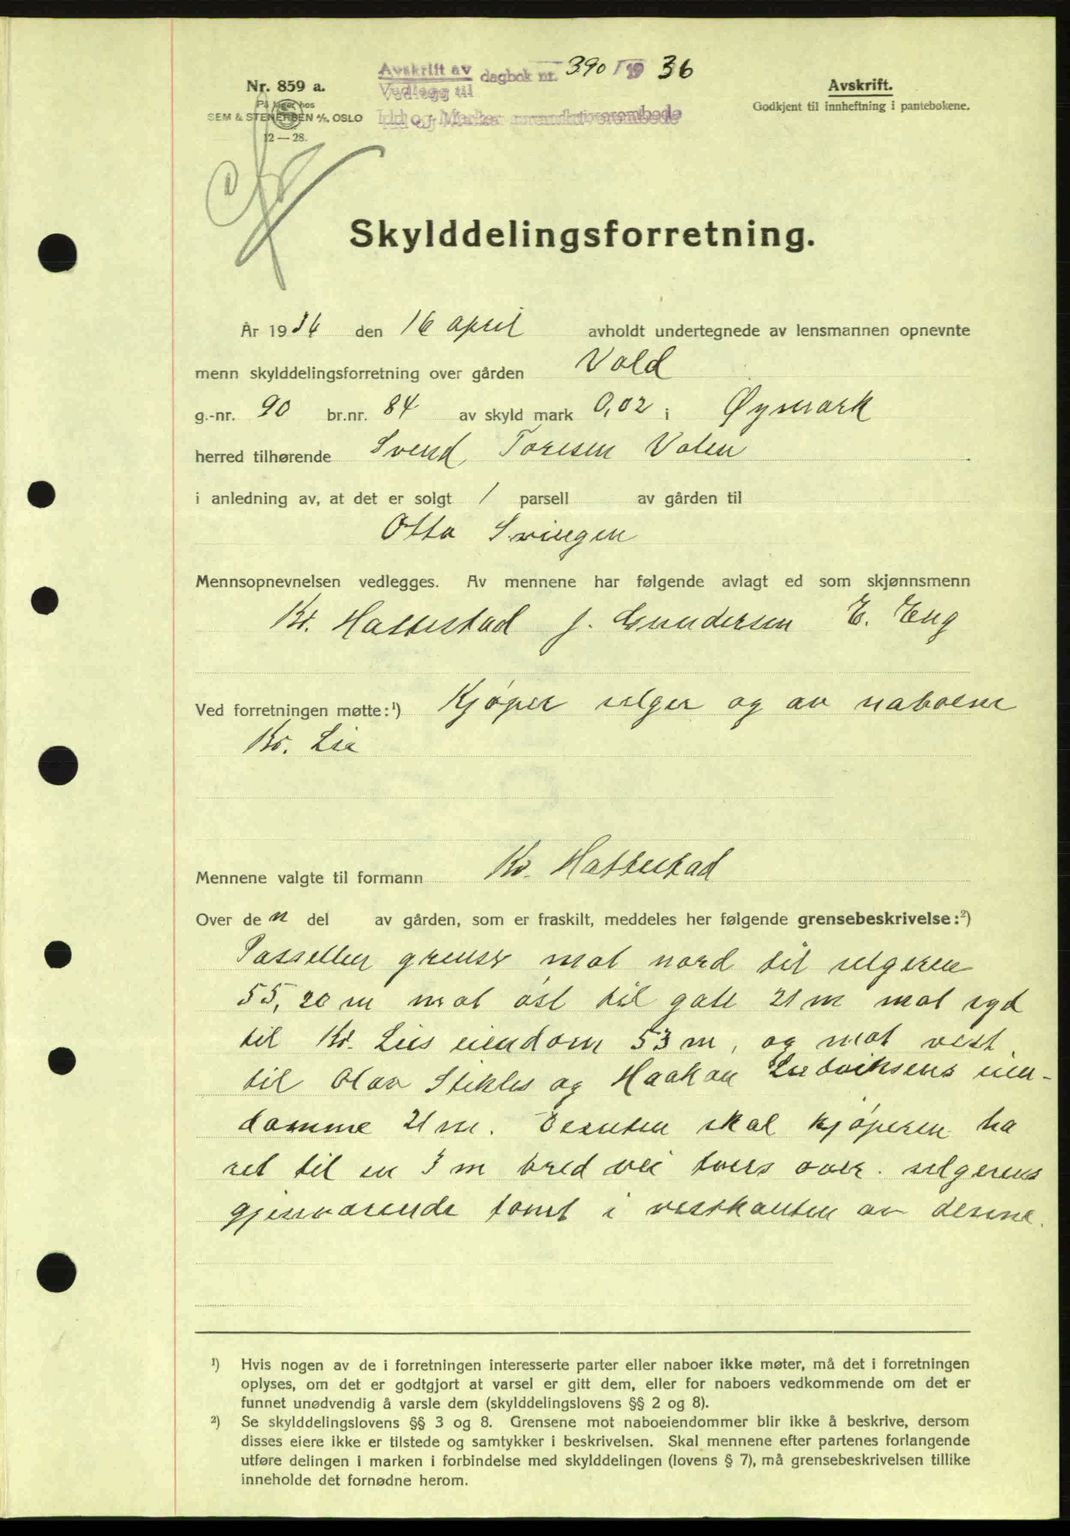 Avskrift av dagbok nr. 390 / 1936
Vedlegg til
Idd og Marker sorenskriverembede
Nr. 859 a.
På lager hos
SEM & STENERSEN A/S, OSLO
12 — 28.
Avskrift.
Godkjent til innheftning i pantebøkene.
Skylddelingsforretning.
År 1936 den 16 april avholdt undertegnede av lensmannen opnevnte
menn skylddelingsforretning over gården Vold
g.-nr. 90 br.nr. 84 av skyld mark 0,02 i Øymark
herred tilhørende Svend Toresen Volen
i anledning av, at det er solgt 1 parsell av gården til
Otto Svingen
Mennsopnevnelsen vedlegges. Av mennene har følgende avlagt ed som skjønnsmenn
Kr. Hattestad J. Gundersen E. Eng
Ved forretningen møtte:¹) Kjøper selger og av naboene
Kr. Lie
Mennene valgte til formann Kr. Hattestad
Over den del av gården, som er fraskilt, meddeles her følgende grensebeskrivelse:²)
Parsellen grenser mot nord til selgeren
55,20 m mot øst til gate 21 m mot syd
til Kr. Lies eiendom 53 m, og mot vest
til Olav Stikles og Haakon Ludviksens eien-
domme 21 m. Desuten skal kjøperen ha
ret til en 3 m bred vei tvers over selgerens
gjenværende tomt i vestkanten av denne.
¹) Hvis nogen av de i forretningen interesserte parter eller naboer ikke møter, må det i forretningen
oplyses, om det er godtgjort at varsel er gitt dem, eller for naboers vedkommende om det er
funnet unødvendig å varsle dem (skylddelingslovens §§ 2 og 8).
²) Se skylddelingslovens §§ 3 og 8. Grensene mot naboeiendommer blir ikke å beskrive, dersom
disses eiere ikke er tilstede og samtykker i beskrivelsen. Skal mennene efter partenes forlangende
utføre delingen i marken i forbindelse med skylddelingen (lovens § 7), må grensebeskrivelsen tillike
inneholde det fornødne herom.